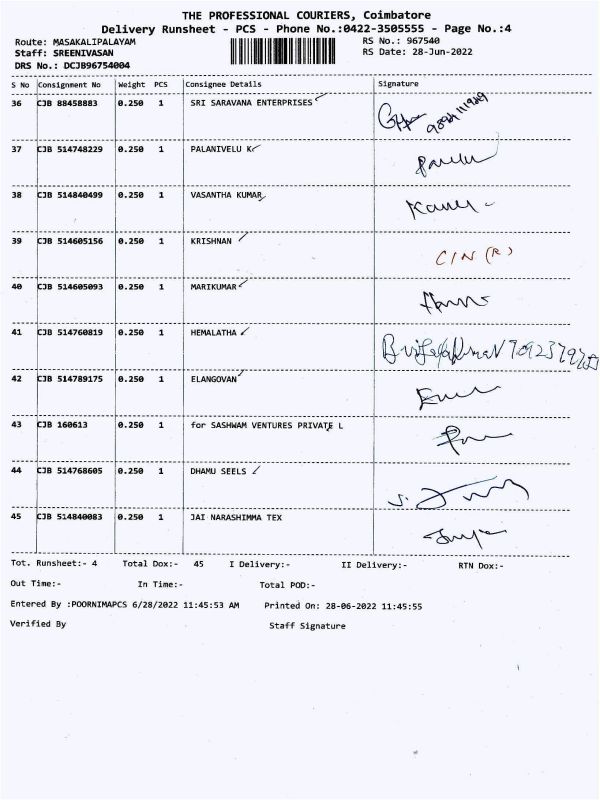 THE PROFESSIONAL COURIERS, Coimbatore
Delivery Runsheet - PCS - Phone No.:0422-3505555 - Page No.:4
Route: MASAKALIPALAYAM RS No.: 967540
Staff: SREENIVASAN RS Date: 28-Jun-2022
DRS No.: DCJB96754004
S No Consignment No Weight PCS Consignee Details Signature
36 CJB 88458883 0.250 1 SRI SARAVANA ENTERPRISES
37 CJB 514748229 0.250 1 PALANIVELU K
38 CJB 514840499 0.250 1 VASANTHA KUMAR
39 CJB 514605156 0.250 1 KRISHNAN CIN (R)
40 CJB 514605093 0.250 1 MARIKUMAR
41 CJB 514760819 0.250 1 HEMALATHA
42 CJB 514789175 0.250 1 ELANGOVAN
43 CJB 160613 0.250 1 for SASHWAM VENTURES PRIVATE L
44 CJB 514768605 0.250 1 DHAMU SEELS
45 CJB 514840083 0.250 1 JAI NARASHIMMA TEX
Tot. Runsheet:- 4 Total Dox:- 45 I Delivery:- II Delivery:- RTN Dox:-
Out Time:- In Time:- Total POD:-
Entered By :POORNIMAPCS 6/28/2022 11:45:53 AM Printed On: 28-06-2022 11:45:55
Verified By Staff Signature